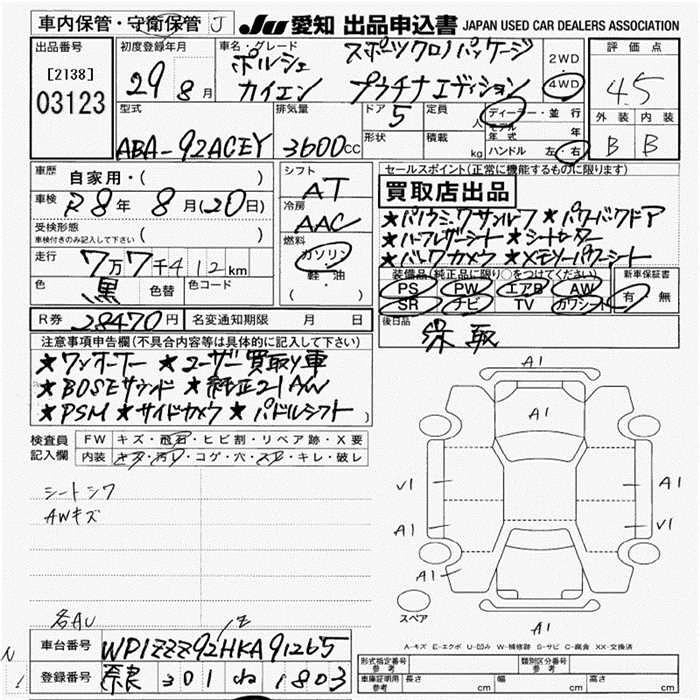 車内保管・守衛保管 J
JU 愛知 出品申込書 JAPAN USED CAR DEALERS ASSOCIATION
出品番号
[2138]
03123
初度登録年月
29 8月
車名・グレード
ポルシェ スポーツクロノパッケージ
カイエン プラチナエディション
2WD
4WD
評価点
4.5
外装 内装
B B
型式
ABA-92ACEY
排気量
3600cc
ドア 5
形状
定員 人
積載 kg
ディーラー・並行
モデル年式 年
ハンドル 左・右
車歴 自家用・( )
車検 R8年 8月(20日)
受検形態
車検付きのみ記入して下さい ( )
走行 7万7千412km
色 黒 色替 色コード
シフト
AT
冷房
AAC
燃料
ガソリン
軽・油
( )
セールスポイント(正常に機能するものに限ります)
買取店出品
★パノラミックサンルーフ ★パワーバックドア
★ハーフレザーシート ★シートヒーター
★バックカメラ ★メモリーパワーシート
装備品(純正品に限り○をつけてください)
PS PW エアB AW
SR ナビ TV カワシート
新車保証書
有・無
R券 28470円 名変通知期限 月 日
後日品 保 取
注意事項申告欄(不具合内容等は具体的に記入して下さい)
★ワンオーナー ★ユーザー買取り車
★BOSEサウンド ★純正21AW
★PSM ★サイドカメラ ★パドルシフト
検査員記入欄
FW キズ・飛石・ヒビ割・リペア跡・X要
内装 キズ・汚レ・コゲ・穴・スレ・キレ・破レ
シートシワ
AWキズ
A1
A1
V1 A1
A1 V1
A1
スペア
A1
各AU
A-キズ E-エクボ U-凹み W-補修跡 S-サビ C-腐食 XX-交換済
車台番号 WP1ZZZ92ZHKA91265
登録番号 奈良 301 ね 1803
型式指定番号
参考
類別区分番号
参考
車庫証明用
参考
長さ cm 幅 cm 高さ cm